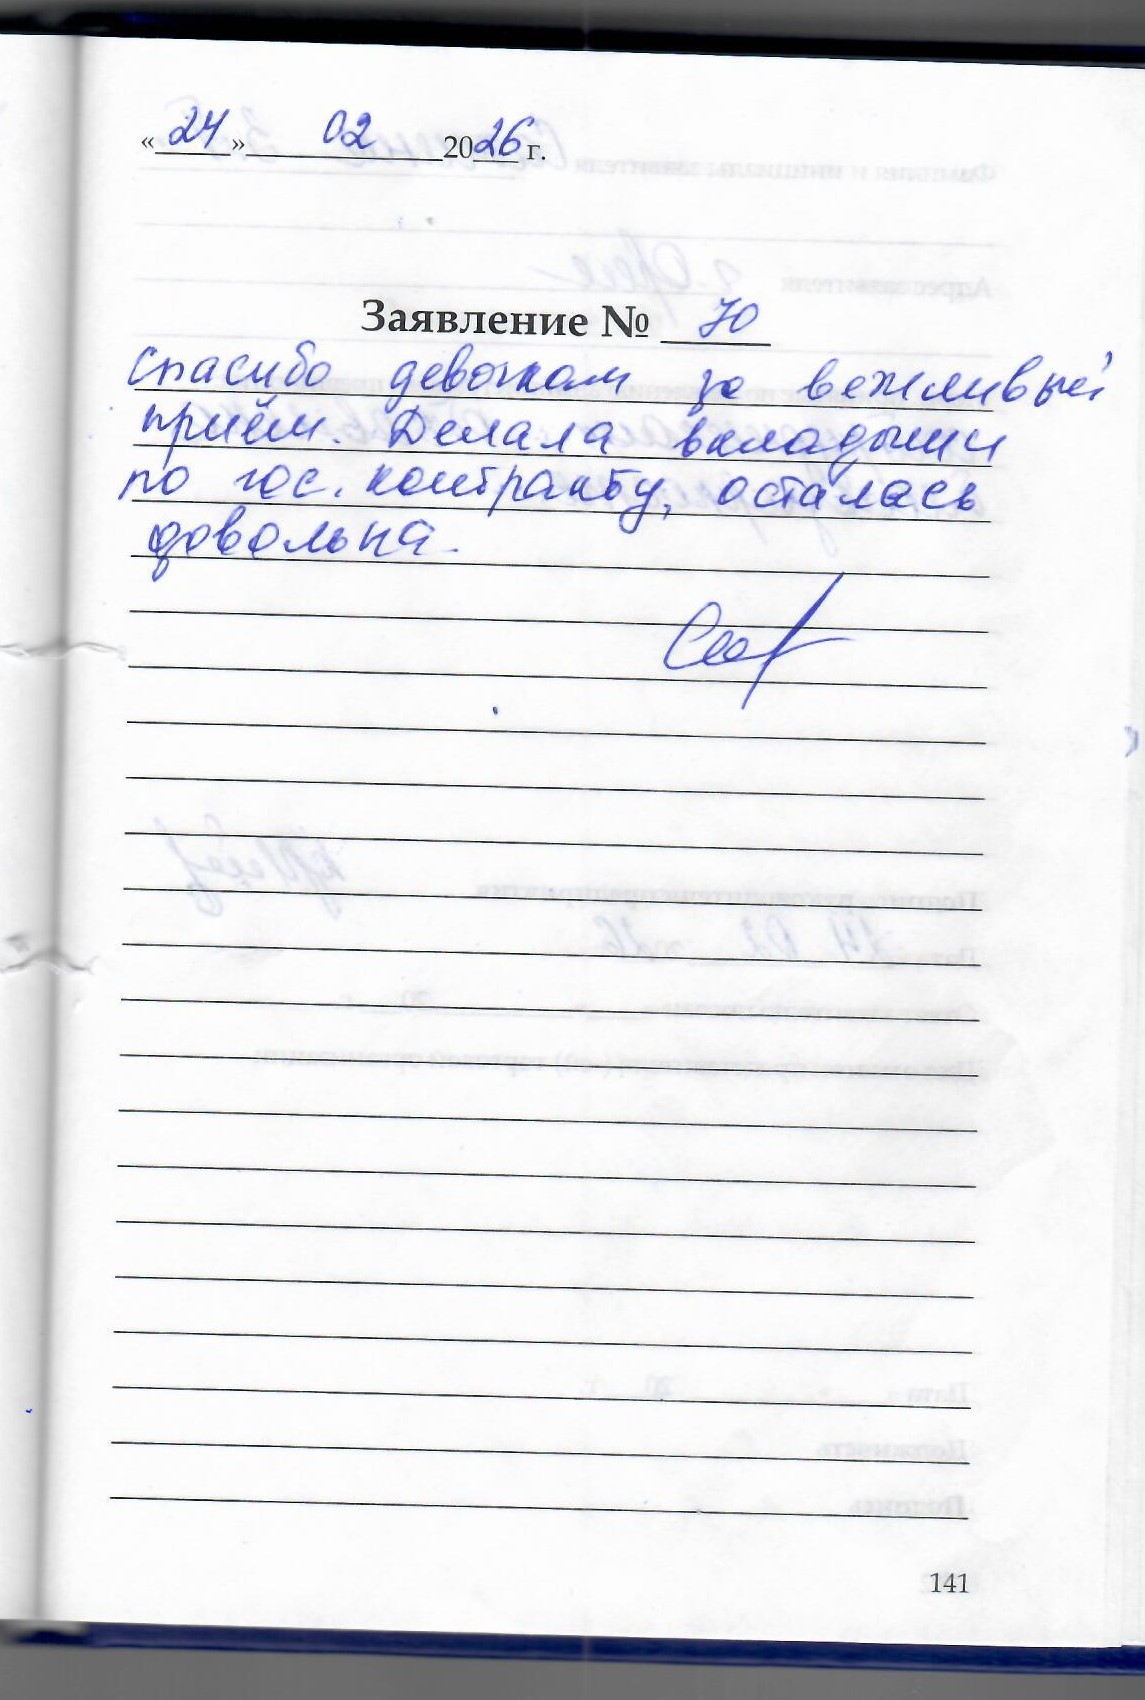 «24» 02 2026 г.
Заявление № 70
Спасибо девочкам за вежливый
приём. Делала вкладыши
по гос. контракту, осталась
довольна.
141